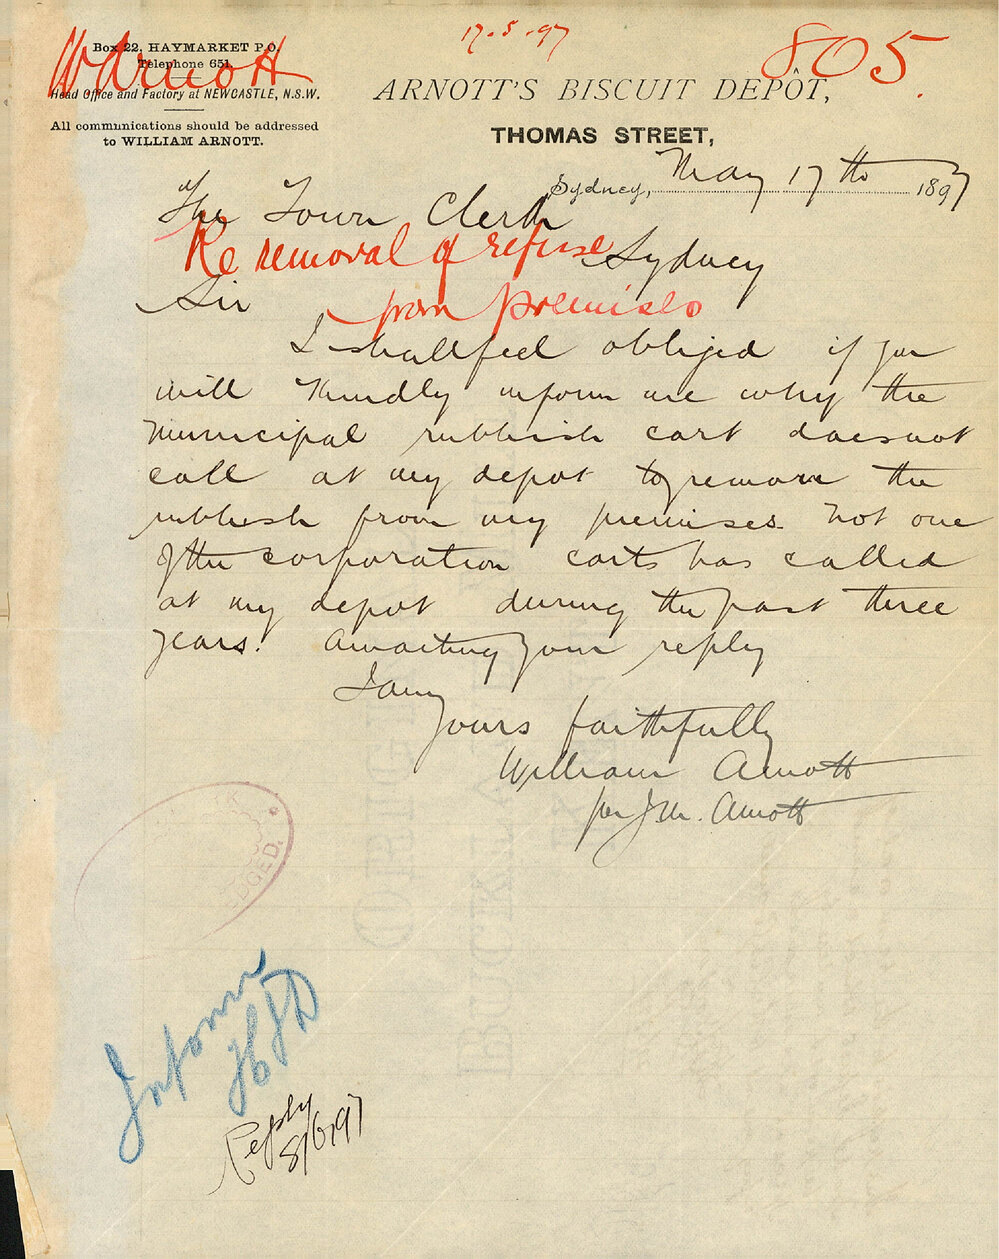 W Arnott
17.5.97
805
Box 22, HAYMARKET P.O.
Telephone 651.
Head Office and Factory at NEWCASTLE, N.S.W.
All communications should be addressed
to WILLIAM ARNOTT.
ARNOTT'S BISCUIT DEPÔT,
THOMAS STREET,
Sydney, May 17th 1897
The Town Clerk
Sydney
Re removal of refuse
from premises
Sir
I shall feel obliged if you
will kindly inform me why the
municipal rubbish cart does not
call at my depot to remove the
rubbish from my premises. Not one
of the corporation carts has called
at my depot during the past three
years. Awaiting your reply
I am
Yours faithfully
William Arnott
per J M. Arnott
Inform
Reply
8/6/97